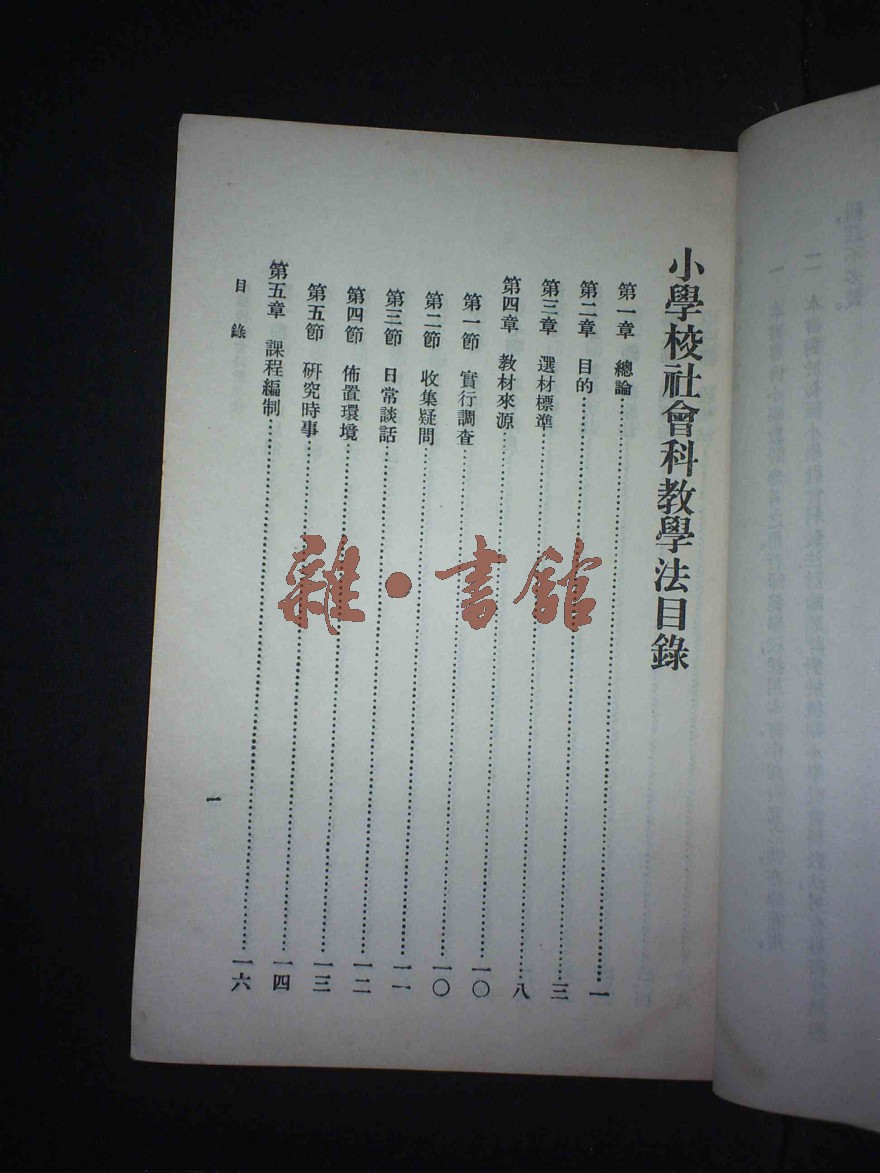 小學校社會科教學法目錄
第一章 總論……一
第二章 目的……三
第三章 選材標準……八
第四章 教材來源……一〇
第一節 實行調查……一〇
第二節 收集疑問……一一
第三節 日常談話……一二
第四節 佈置環境……一三
第五節 研究時事……一四
第五章 課程編制……一六
目錄
一
雜·書館